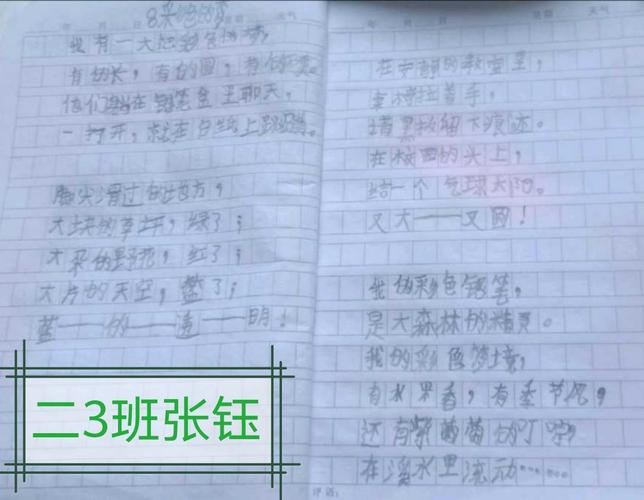 8彩色的梦
我有一大把彩色的梦,
有的长,有的圆,有的硬。
他们躺在铅笔盒里聊天,
一打开,就在白纸上跳蹦。
脚尖滑过的地方,
大块的草坪,绿了;
大朵的野花,红了;
大片的天空,蓝了;
蓝——的——透——明!
在安静的教室里,
拉着手,
请黑板留下痕迹。
在校园的头上,
结一个气球太阳。
又大——又圆!
我的彩色铅笔,
是大森林的精灵。
我的彩色梦境,
有水果香,有季节风,
还有紫葡萄的叮咛,
在溪水里流动……
评语:
二3班张钰